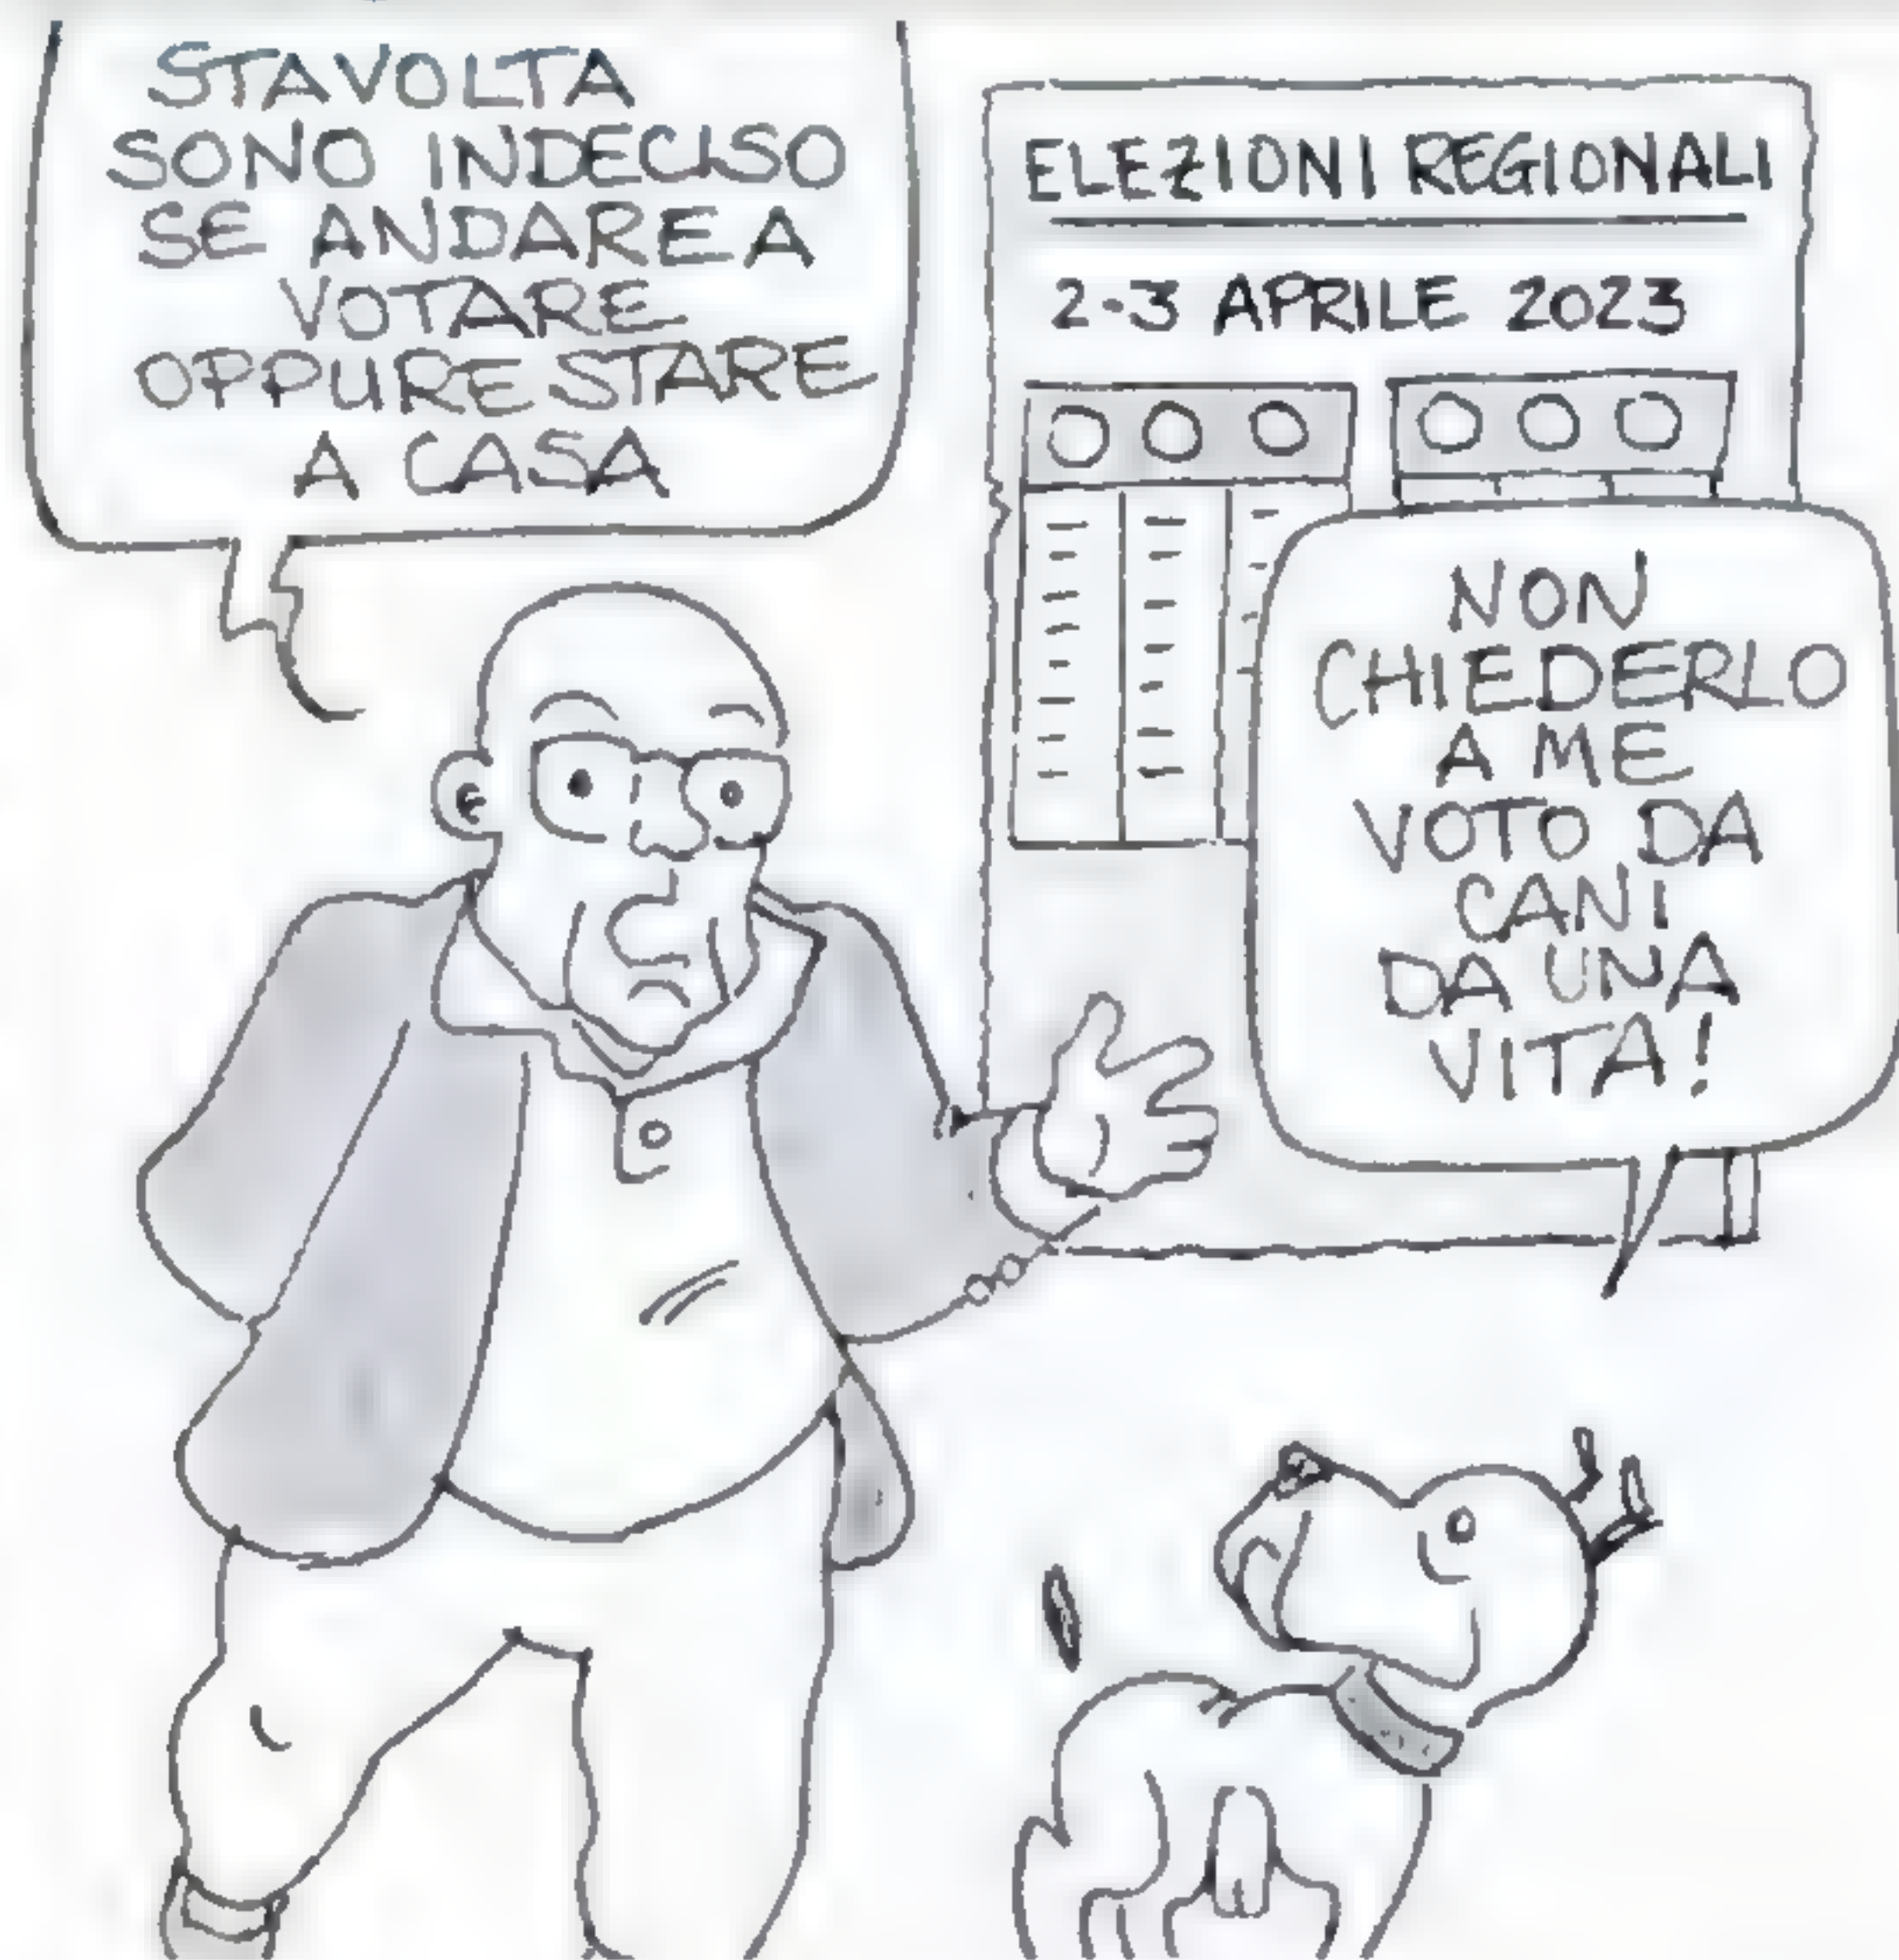 STAVOLTA
SONO INDECISO
SE ANDARE A
VOTARE
OPPURE STARE
A CASA
ELEZIONI REGIONALI
2-3 APRILE 2023
NON
CHIEDERLO
A ME
VOTO DA
CANI
DA UNA
VITA!